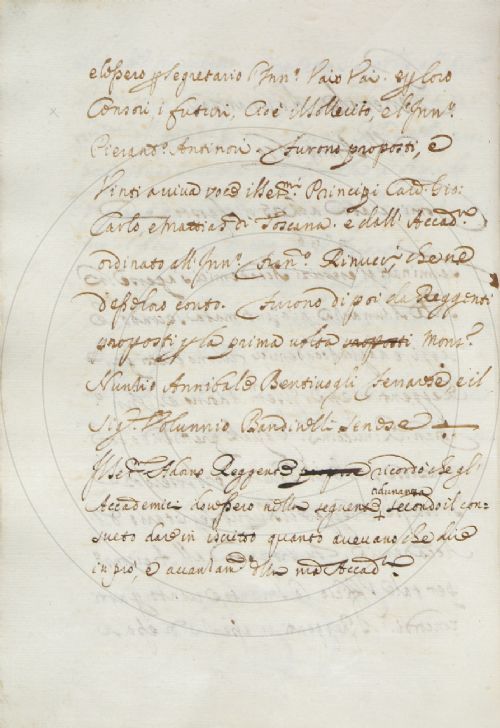 elessero p segretario l'Inn.º Vaio Vai. e p loro
Censori i futuri, Cioè il Sollecito, e l'Inn.º
Pierand.º Antinori. Furono proposti, e
Vinti a viva voce i Ser.mi Principi Card. Gio:
Carlo, e Mattias di Toscana. e dall' Accad.ª
ordinato all' Inn.º Rinucci che ne
desse loro conto. Furono di poi da Reggenti
proposti p la prima volta proposti Mons.r
Nunzio Annibale Bentivogli Ferrarese e il
Sig.r Volunnio Bandinelli Senese
Il Ser.º Adamo Reggente propose ricordò che gl'
Accademici dovessero nella seguente adunanza secondo il con-
sueto dare in iscritto quanto avevano che dire
in pro, e avanzam.º della n.ra Accad.ª